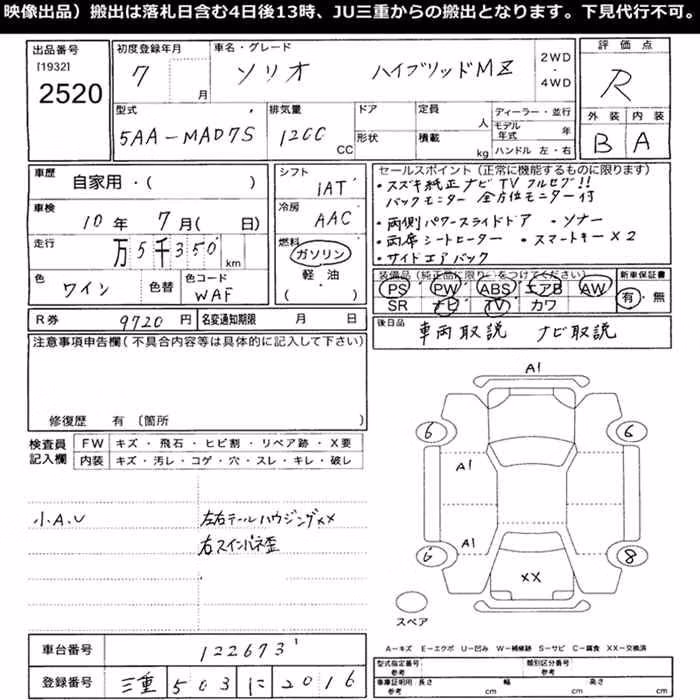 映像出品）搬出は落札日含む4日後13時、JU三重からの搬出となります。下見代行不可。
出品番号
[1932]
2520
初度登録年月
7
月
車名・グレード
ソリオ ハイブリッドMZ
2WD
・
4WD
評価点
R
外装 内装
B A
型式
5AA-MAD7S
排気量
12CC
CC
ドア
形状
定員
人
積載
kg
ディーラー・並行
モデル年式 年
ハンドル 左・右
車歴
自家用・( )
車検
10年 7月( 日)
走行
万5千350 km
色
ワイン
色替
色コード
WAF
シフト
IAT
冷房
AAC
燃料
ガソリン
軽・油
( )
セールスポイント（正常に機能するものに限ります）
・スズキ純正ナビ TV フルセグ!!
バックモニター 全方位モニター付
・両側パワースライドドア ・ソナー
・両席シートヒーター ・スマートキー×2
・サイドエアバック
装備品（純正品に限り○をつけてください）
PS PW ABS エアB AW
SR ナビ TV カワ
新車保証書
有・無
R券 9720 円 名変通知期限 月 日
後日品
車両取説 ナビ取説
注意事項申告欄（不具合内容等は具体的に記入して下さい）
修復歴 有〔箇所 〕
検査員
記入欄
FW キズ・飛石・ヒビ割・リペア跡・X要
内装 キズ・汚レ・コゲ・穴・スレ・キレ・破レ
小.A.U
左右テールハウジングXX
右スインパネ歪
A1
6 6
A1
A1
6 8
XX
スペア
A-キズ E-エクボ U-凹み W-補修跡 S-サビ C-腐食 XX-交換済
車台番号 122673 1
登録番号 三重 503 に 2016
型式指定番号 参考
類別区分番号 参考
車庫証明用 参考
長さ cm 幅 cm 高さ cm